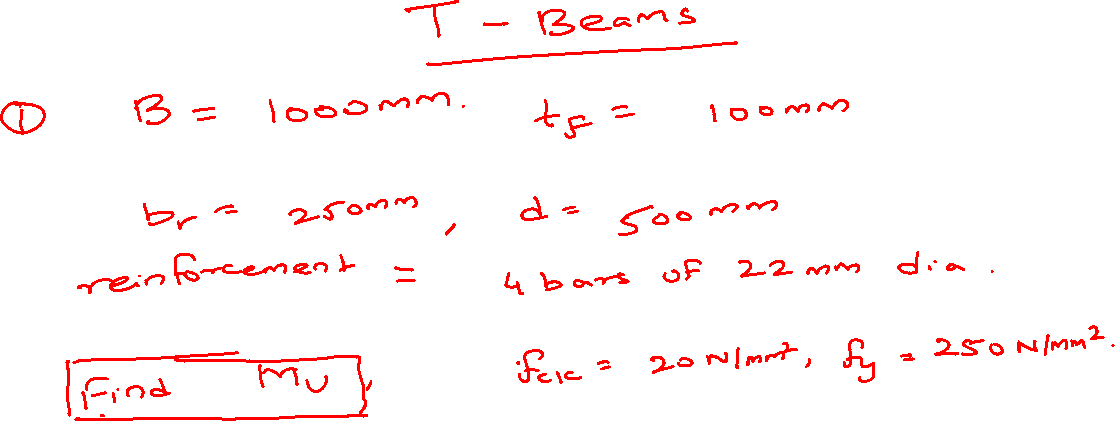 T - Beams
① B = 1000mm. tf = 100mm
br = 250mm, d = 500mm
reinforcement = 4 bars of 22 mm dia.
Find Mu, fck = 20 N/mm², fy = 250 N/mm².